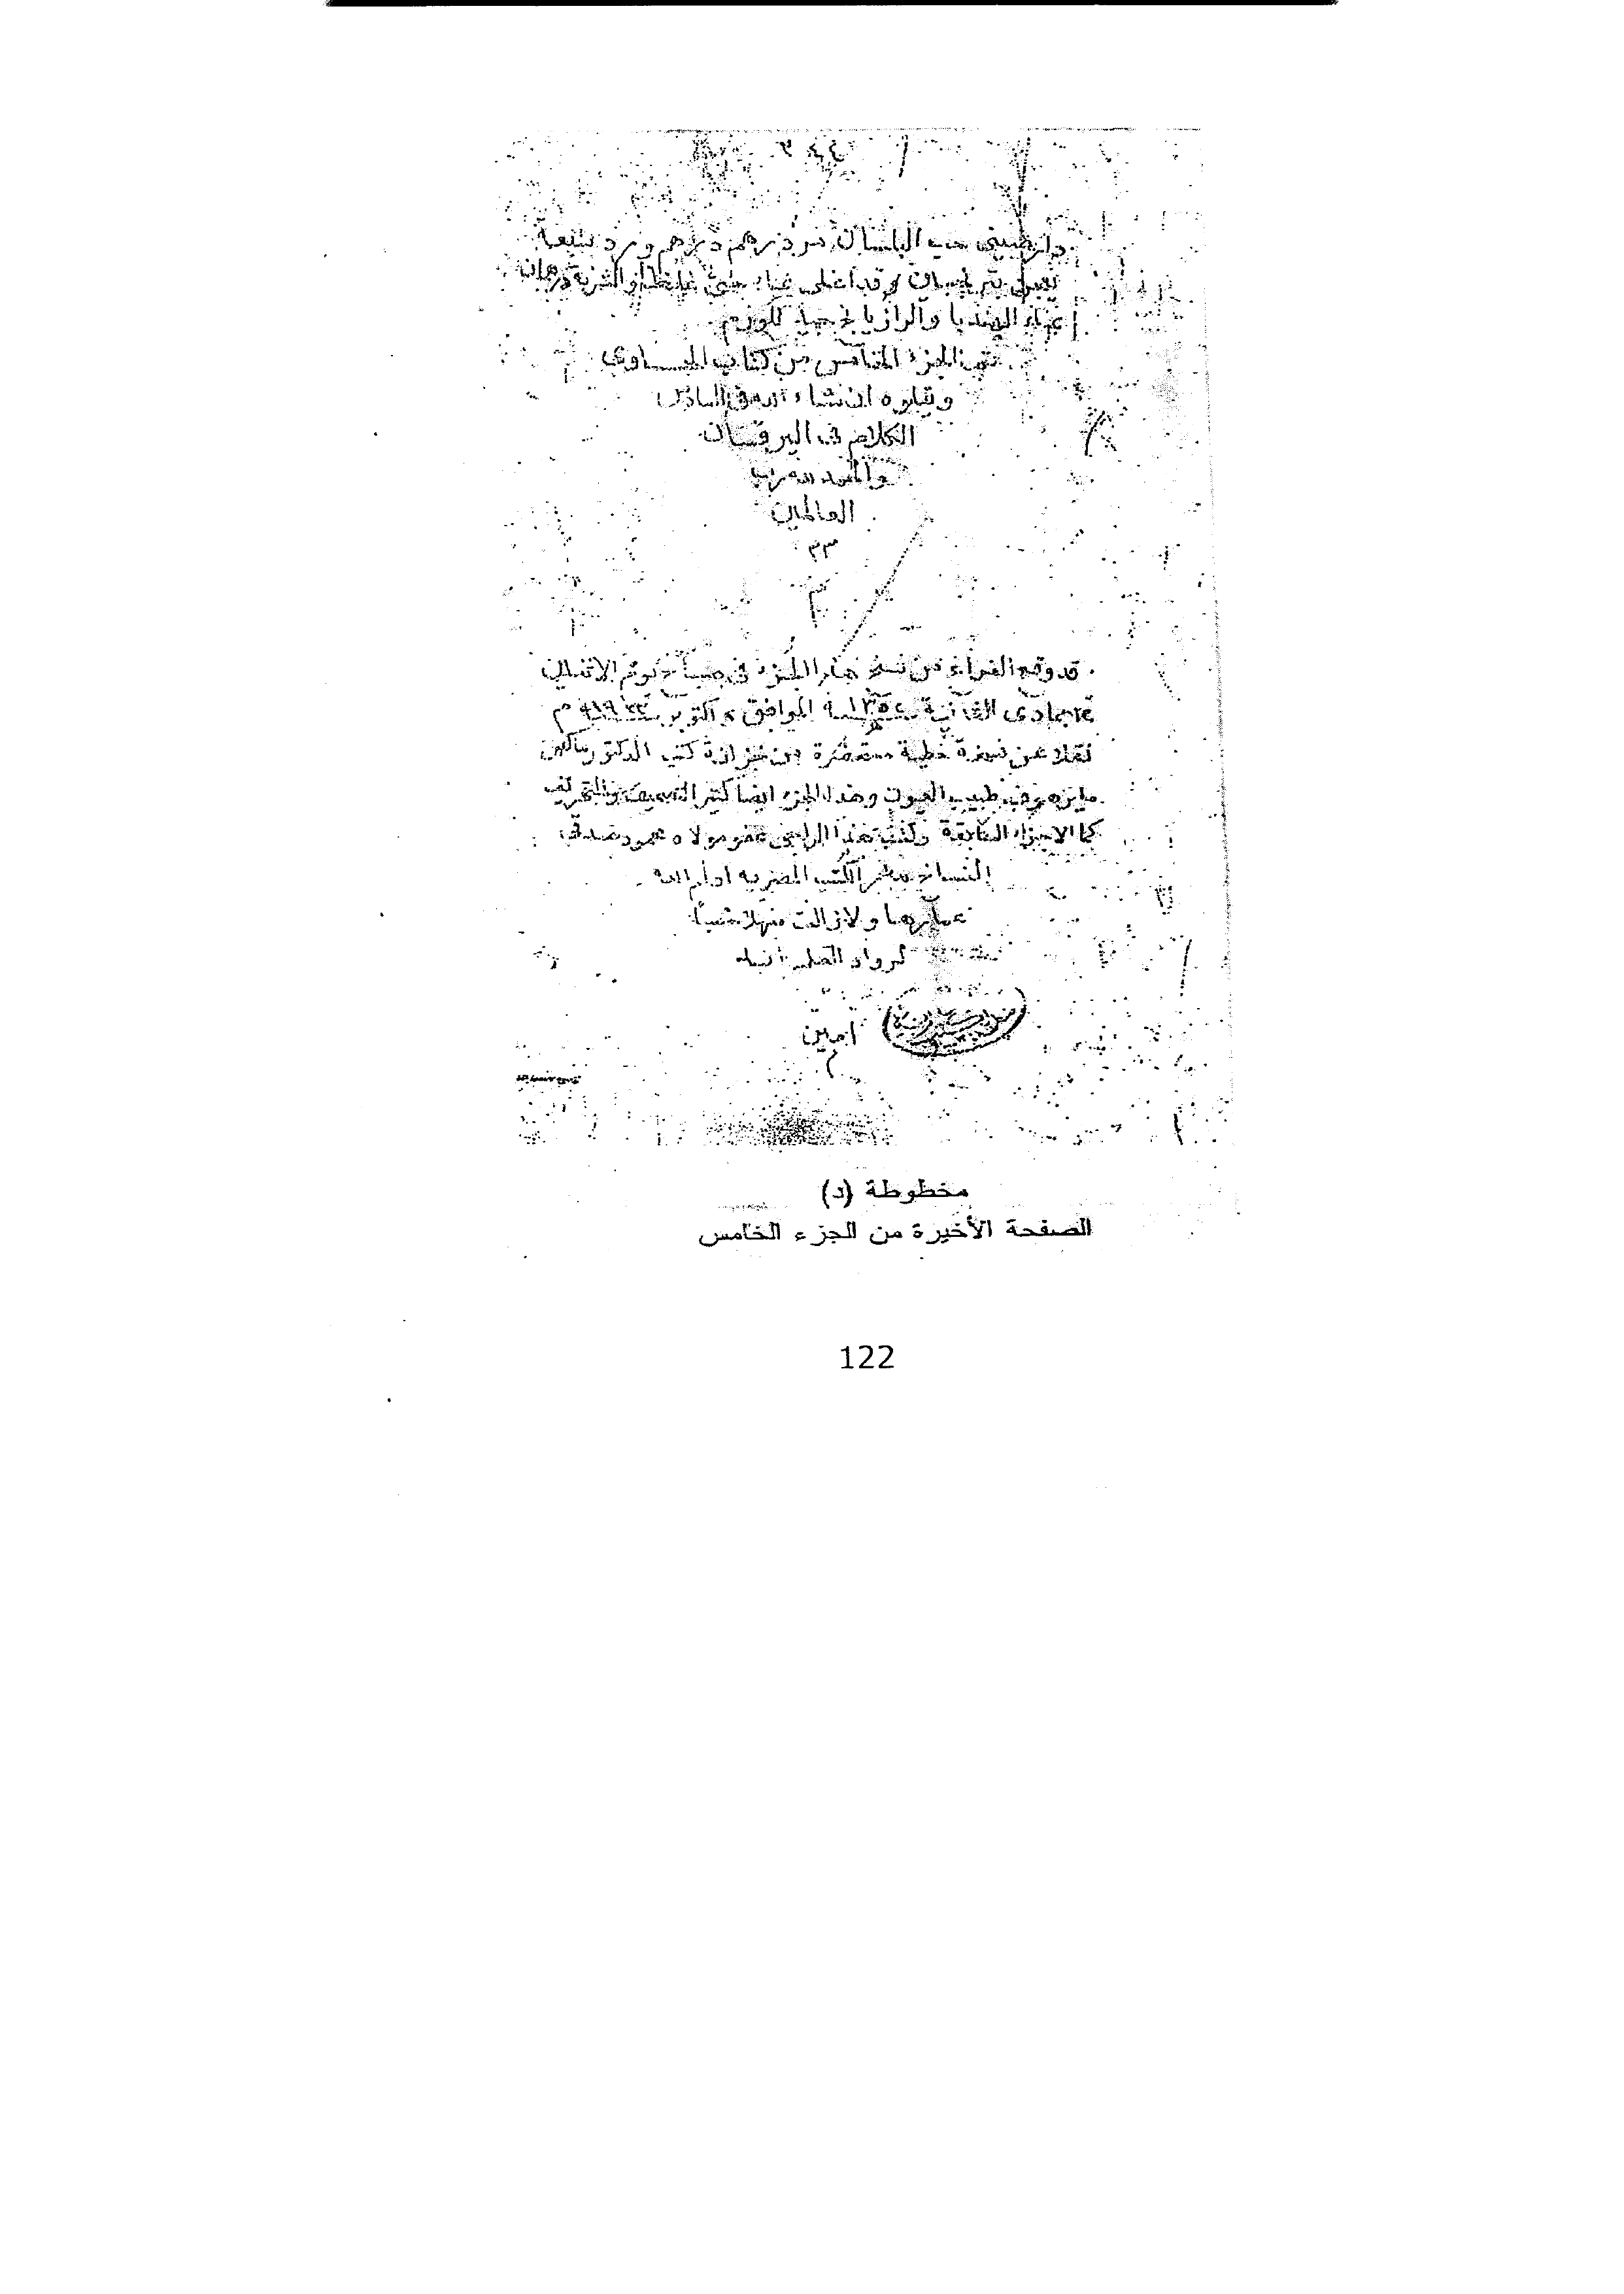 ٣٤٤
حب البلسان مر درهم درهم ورد سبعة
يعجن وقد اغلى او الشربة درهمان
بماء الهندبا والرازيانج جيد للورم
تم الجزء الخامس من كتاب الحاوى
ويتلوه ان شاء الله فى السادس
الكلام فى اليرقان
والحمد لله رب
العالمين
قد وقع الفراغ من نسخ هذا الجزء فى صباح يوم الاثنين
جمادى الثانية ١٣٥٢ الموافق اكتوبر ١٩٣٣ م
نقلا عن نسخة خطية مستحضرة من خزانة كتب الدكتور ماكس
مايرهوف طبيب العيون وهذا الجزء ايضا كثير التصحيف والتحريف
كما الاجزاء السابقة وكتب هذا الراجى عفو مولاه محمود صدقى
النساخ بدار الكتب المصرية ادام الله
عمارها ولا زالت منهلا عذبا
لرواد العلم
آمين
مخطوطة (د)
الصفحة الأخيرة من الجزء الخامس
122